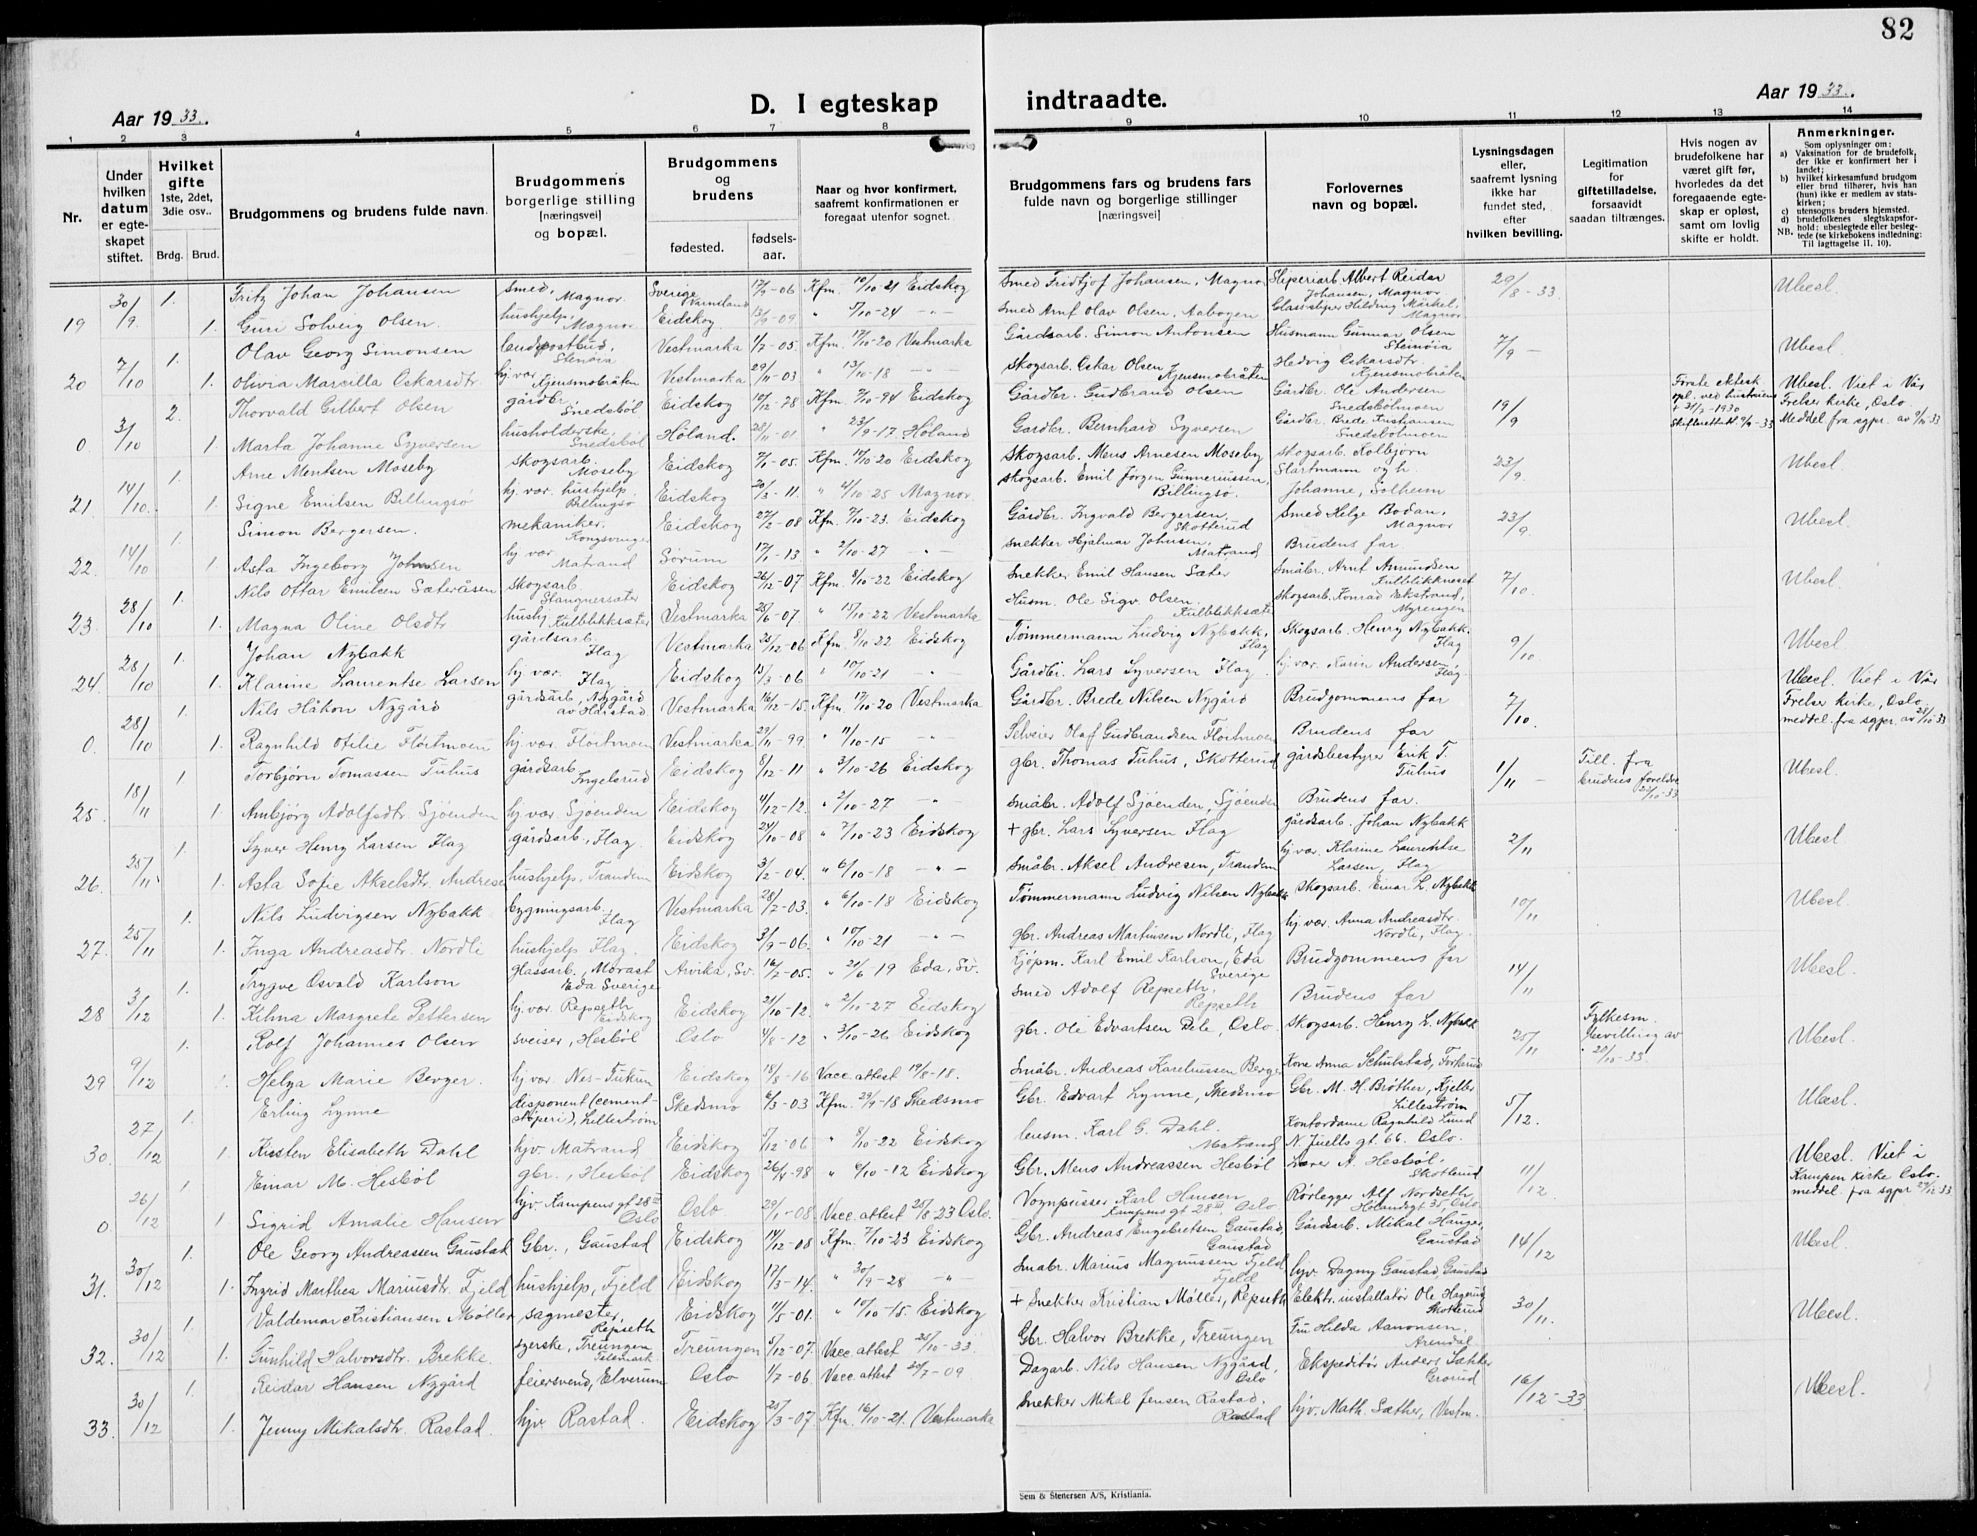 82
Aar 1933.
D. I egteskap indtraadte.
Aar 1933.
1 2 3 4 5 6 7 8 9 10 11 12 13 14
Nr.
Under hvilken datum er egteskapet stiftet.
Hvilket gifte 1ste, 2det, 3die osv..
Brdg. Brud.
Brudgommens og brudens fulde navn.
Brudgommens borgerlige stilling [næringsvei] og bopæl.
Brudgommens og brudens
fødested.
fødselsaar.
Naar og hvor konfirmert, saafremt konfirmationen er foregaat utenfor sognet.
Brudgommens fars og brudens fars fulde navn og borgerlige stillinger [næringsvei]
Forlovernes navn og bopæl.
Lysningsdagen eller, saafremt lysning ikke har fundet sted, efter hvilken bevilling.
Legitimation for giftetilladelse, forsaavidt saadan tiltrænges.
Hvis nogen av brudefolkene har været gift før, hvorledes da det foregaaende egteskap er opløst, samt om lovlig skifte er holdt.
Anmerkninger.
Som oplysninger om:
a) Vaksination for de brudefolk, der ikke er konfirmert her i landet;
b) hvilket kirkesamfund brudgom eller brud tilhører, hvis han (hun) ikke er medlem av statskirken;
c) utensogns bruders hjemsted.
d) brudefolkenes slegtskapsforhold: ubeslegtede eller beslegtede (se kirkebokens indledning: NB. Til iagttagelse II. 10).
19 30/9. 1. Fritz Johan Johansen smed, Magnor Sverige Värmland 17/9-06 Kfm. 10/10-21 Eidskog Smed Fridtjof Johansen, Magnor Sliperiarb. Albert Reidar Johansen, Magnor 20/8-33 Ubesl.
1. Guri Solveig Olsen. hushjelp, Magnor Eidskog 13/9-09 " 5/10-24 -"- Smed Arnt Olav Olsen, Aabogen Glassliper Hilding Märkel, Magnor
20 7/10 1. Olav Georg Simonsen landspostbud, Stenøia Vestmarka 1/7-05. Kfm. 17/10-20 Vestmarka Gårdsarb. Simon Antonsen Husmann Gunnar Olsen Steinøia 7/9 - Ubesl.
1. Olivia Marcilla Oskarsdtr. hj. vær. Kjensmobråten Vestmarka 29/11-03 " 13/10-18 -"- Skogsarb. Oskar Olsen Kjensmobråten Hedvig Oskarsdtr. Kjensmobråten
0 3/10 2. Thorvald Gilbert Olsen gårdbr. Snedsbøl Eidskog 10/12-78 Kfm. 7/10-94 Eidskog Gårdbr. Gudbrand Olsen Gårdbr. Ole Andersen Snedsbølmoen 19/9 Første ektesk. opl. ved hustruens + 31/7-1930 Ubesl. Viet i Vår Frelser kirke, Oslo. Meddel. fra sgpr. av 9/10-33
1. Marta Johanne Syversen husholderske, Snedsbøl Høland. 28/11-01 " 23/9-17. Høland Gardbr. Bernhard Syversen Gårdbr. Brede Kristiansen Snedsbølmoen
21. 14/10. 1. Arne Mentsen Moseby skogsarb. Moseby Eidskog 7/1-05. Kfm. 11/10-20 Eidskog Skogsarb. Mens Arnesen Moseby skogsarb. Kolbjørn Startmann og h. 23/9. Ubesl.
1. Signe Emilsen Billingsø hj. vær. hushjelp Billingsø Eidskog 20/3-11. " 4/10-25 Magnor. skogsarb. Emil Jørgen Gunneriussen Billingsø. Johanne, Solheim
22. 14/10 1. Simon Bergersen. mekaniker. Kongsvinger Eidskog 27/2-08 Kfm. 7/10-23. Eidskog Gårdbr. Ingvald Bergersen, Skotterud Smed Helge Bodan, Magnor 23/9 Ubesl.
1 Asta Ingeborg Johnsen hj vær Matrand Sørum 17/1-13 " 2/10-27 -"- snekker Hjalmar Johnsen, Matrand Brudens far.
23. 28/10 1. Nils Ottar Emilsen Sæteråsen skogsarb. Stangnessæter Eidskog 26/12-07 Kfm. 8/10-22 Eidskog Snekker Emil Hansen Sæter Småbr. Arnt Amundsen Kulblikkneset 7/10. Ubesl.
1. Magna Oline Olsdtr. hushj. Kulblikksæter Vestmarka 28/6-07. " 15/10-22 Vestmarka Husm. Ole Sigv. Olsen. Kulblikksæter skogsarb. Konrad Ekstrand, Myrengen
24. 28/10 1. Johan Nybakk gårdsarb. Flag Vestmarka 25/12-06 Kfm. 8/10-22 Eidskog Tømmermann Ludvig Nybakk. Flag Skogsarb. Henry Nybakk. Flag 9/10. Ubesl.
1. Klarine Laurentse Larsen hj. vær. Flag Eidskog 13/3-06 " 10/10-21 -"- Gårdbr. Lars Syversen Flag hj. vær. Karin Andersen, Flag.
0. 28/10 1. Nils Håkon Nygård gårdsarb. Nygård av Harstad Vestmarka 16/12-15. Kfm. 17/10-20 Vestmarka Gårdbr. Brede Nilsen Nygård Brudgommens far 7/10. Ubesl. Viet i Vår Frelser kirke, Oslo medtel. fra sgpr. av 28/10-33
1. Ragnhild Otilie Fløitmoen hj. vær. Fløitmoen Vestmarka 29/11-99 " 11/10-15 -"- Selveier Olaf Gudbrandsen Fløitmoen Brudens far
25. 18/11 1 Torbjørn Tomassen Tuhus gårdsarb. Ingelsrud Eidskog 8/12-11 " 3/10-26 Eidskog gbr. Thomas Tuhus, Skotterud gårdsbestyrer Erik T. Tuhus 1/11 - Till. fra brudens foreldre 23/10-33 Ubesl.
1. Ambjørg Adolfsdtr. Sjøenden hj. vær. Sjøenden Eidskog 4/12-12. " 2/10-27 -"- småbr. Adolf Sjøenden, Sjøenden Brudens far.
26. 25/11. 1. Syver Henry Larsen Flag gårdsarb., Flag Eidskog 24/10-08 " 7/10-23 Eidskog + gbr. Lars Syversen Flag gårdsarb. Johan Nybakk 2/11 Ubesl
1. Asta Sofie Akselsdtr. Andresen hushjelp. Tranden Eidskog 3/2-04. " 6/10-18 -"- småbr. Aksel Andresen, Tranden hj. vær. Klarine Laurentse Larsen, Flag
27. 25/11 1. Nils Ludvigsen Nybakk bygningsarb. Flag Vestmarka 28/7-03. " 6/10-18 Eidskog Tømmermann Ludvig Nilsen Nybakk skogsarb. Einar L. Nybakk 10/11 Ubesl.
1. Inga Andreasdtr. Nordli hushjelp Flag Eidskog 3/9-06. " 10/10-21 -"- gbr. Andreas Martinsen Nordli, Flag hj. vær. Anna Andreasdtr. Nordli, Flag.
28 3/12 1. Trygve Osvald Karlson glassarb., Morast Eda Sverige Arvika, Sv. 16/2-05. " 21/6 19 Eda, Sv. Kjøpm. Karl Emil Karlson, Eda Sverige Brudgommens far 14/11 Ubesl.
1. Hilma Margrete Pettersen hj. vær. Repseth Eidskog Eidskog 21/10-12. " 2/10-27 Eidskog smed Adolf Repseth, Repseth Brudens far
29 9/12 1. Rolf Johannes Olsen sveiser, Hesbøl Oslo 4/8-12 " 3/10-26 Eidskog gbr. Ole Edvartsen Dele, Oslo skogsarb. Henry L. Nybakk 25/11 Fylkesm. bevilling av 20/10-33 Ubesl.
1. Helga Marie Berger. hj. vær. Nes-Tukun Eidskog 18/8-16 Vacc. attest 19/8-18. Småbr. Andreas Karelnussen Berger Kone Anna Schulstad, Forkerud
30. 27/12 1. Erling Lynne disponent (cementstøperi), Lillestrøm Skedsmo 6/3-03 Kfm. 29/9-18 Skedsmo Gbr. Edvart Lynne, Skedsmo Gbr. M. H. Brøther, Kjeller Lillestrøm 5/12. Ubesl.
1. Kirsten Elisabeth Dahl hjv. Matrand Eidskog 5/12-06 " 8/10-22 Eidskog lensm. Karl G. Dahl. Matrand Kontordame Ragnhild Lund N. Juells gt. 66. Oslo.
0 26/12 1. Einar M. Hesbøl gbr., Hesbøl Eidskog 26/4-98 " 6/10-12 Eidskog Gbr. Mens Andreassen Hesbøl Lærer A. Hesbøl. Skotterud 11/12 Ubesl. Viet i Kampen kirke Oslo. medtel. fra sgpr 29/12 33
1 Sigrid Amalie Hansen hjv. Kampens gt 28 III Oslo Oslo 29/1-08. Vacc. attest 25/8 23 Oslo. Vognpusser Karl Hansen Kampens gt 28 III, Oslo Rørlegger Alf Nordseth Hølandsgt 35, Oslo
31. 30/12 1. Ole Georg Andreassen Gaustad Gbr., Gaustad Eidskog 14/12-08 Kfm. 7/10-23 Eidskog Gbr. Andreas Engebretsen Gaustad, Gaustad Gårdsarb. Mikal Hauger, Gaustad 14/12 Ubesl.
1. Ingrid Marthea Mariusdtr. Fjeld hushjelp, Fjeld Eidskog 17/3-14. " 30/9-28 -"- Småbr. Marius Magnussen Fjeld Fjeld hjv. Dagny Gaustad, Gaustad
32. 30/12 1. Valdemar Kristiansen Møller sagmester, Repseth Eidskog 11/5-01. " 10/10-15. Eidskog + Snekker Kristian Møller, Repseth Elektr. installatør Ole Hagerup Skotterud 30/11. Ubesl.
1. Gunhild Halvorsdtr. Brekke. syerske, Treungen Telemark Treungen 5/12-07. Vacc. attest 25/10-33. Gbr. Halvor Brekke, Treungen Fru Hilda Aanonsen, Arendal
33. 30/12 1. Reidar Hansen Nygård feiersvend, Elverum Oslo 1/7-06 Vacc. attest 20/7-09 Dagarb. Nils Hansen Nygård, Oslo Ekspeditør Anders Sækker Grorud 16/12-33 Ubesl.
1. Jenny Mikalsdtr. Rastad. hjv Rastad. Eidskog 25/3-07. Kfm. 16/10-21. Vestmarka Snekker Mikal Jensen Rastad. Rastad hjv. Math. Sæther, Vestm.
Sem & Stenersen A/S, Kristiania.